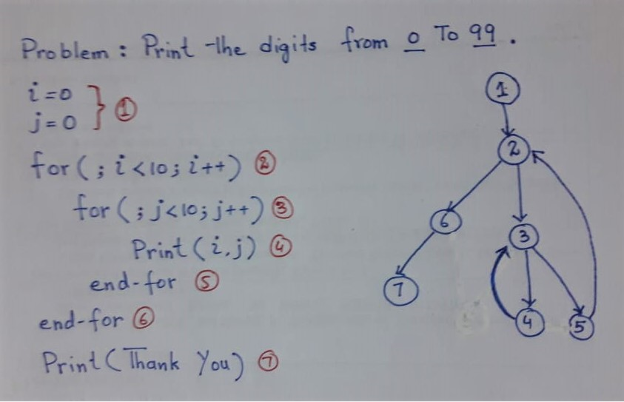 Problem : Print the digits from 0 To 99 .
i=0
j=0 } ①
for ( ; i<10 ; i++) ②
for ( ; j<10 ; j++) ③
Print (i,j) ④
end-for ⑤
end-for ⑥
Print (Thank You) ⑦
1
2
6
3
7
4
5